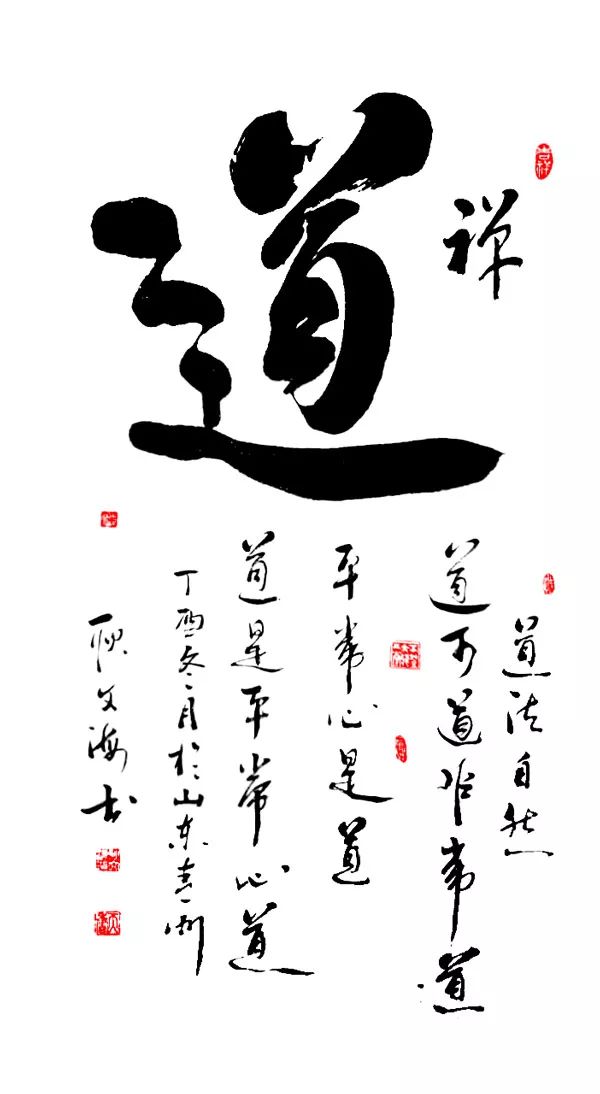 吉祥
禅
道
道法自然
道可道非常道
平常心是道
道是平常心道
丁酉冬月於山东青州
耿文海书